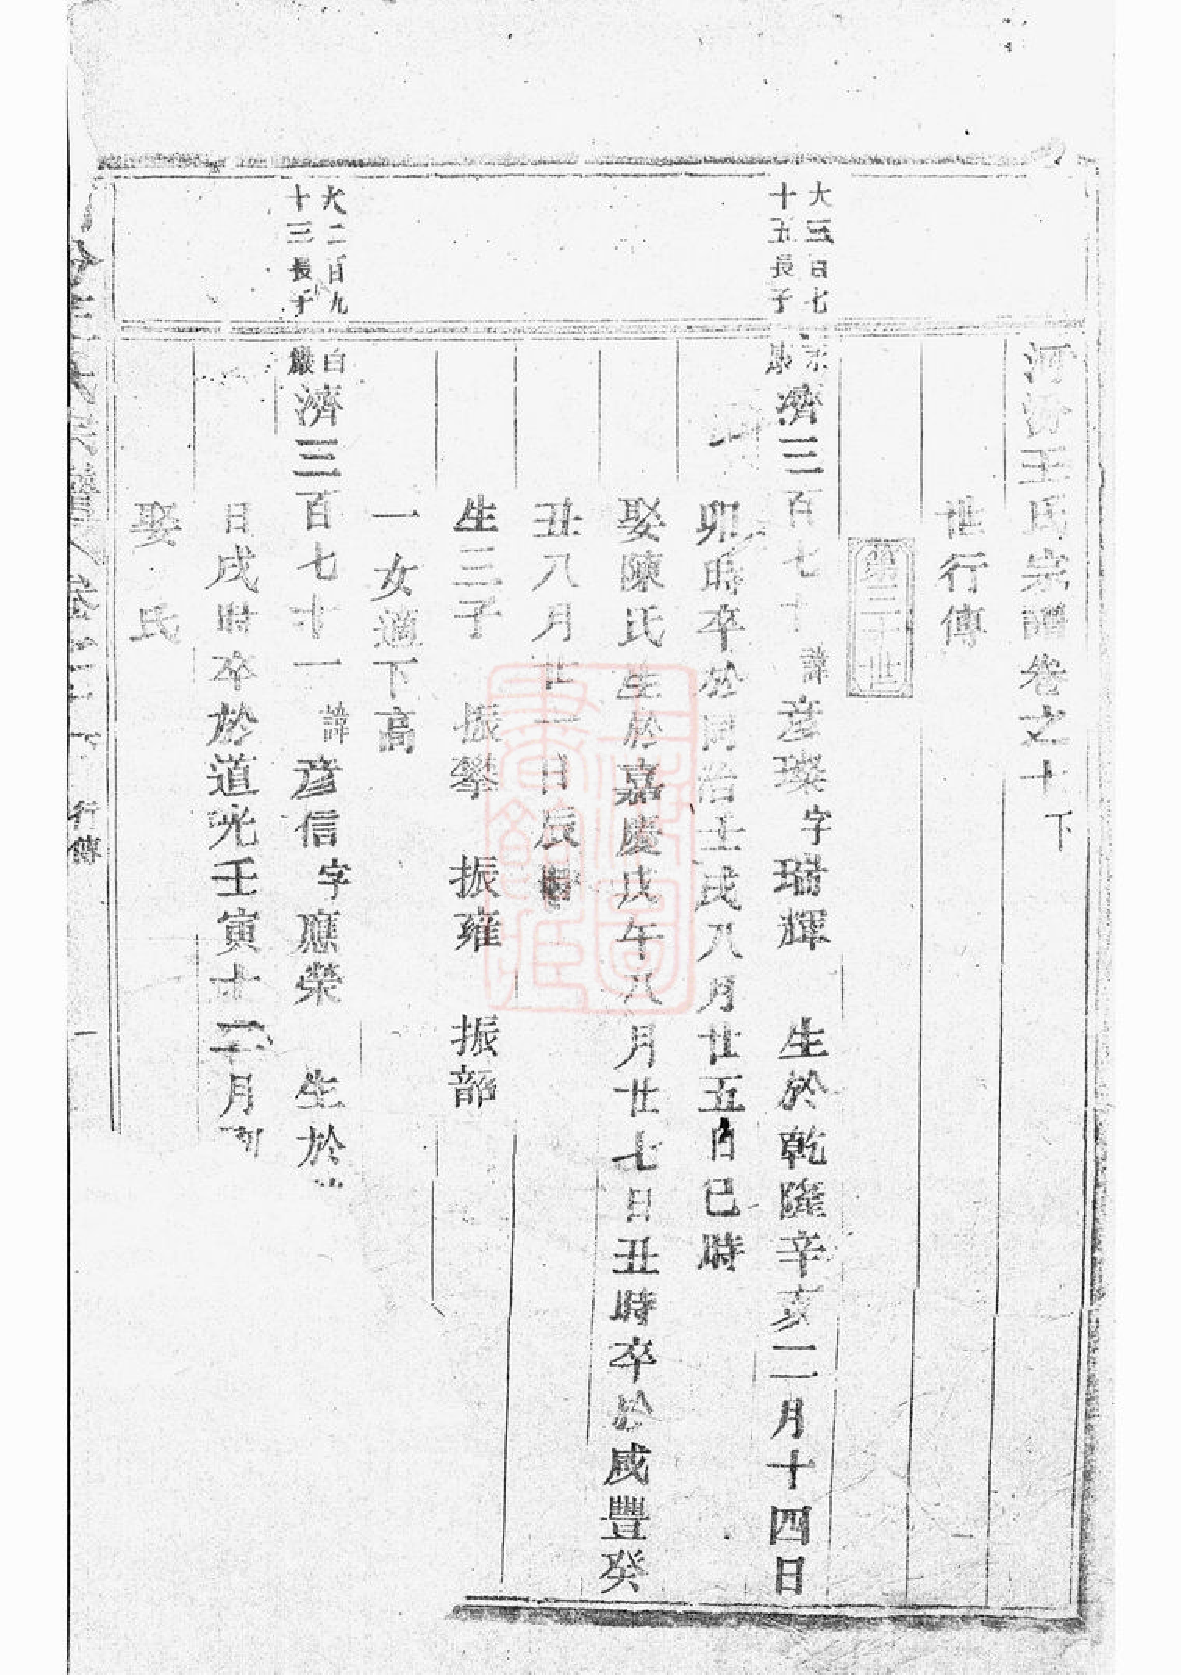 河汾王氏宗譜卷之十下
世行傳
第三十世
大三百七
十五長子
濟三百七十 諱彥璨字瑞輝 生於乾隆辛亥二月十四日
卯時卒於同治壬戌八月廿五日巳時
娶陳氏生於嘉慶戊午八月廿七日丑時卒於咸豐癸
丑八月廿一日辰時
生三子 振攀 振雍 振韶
一女適下高
大二百九
十三長子
白巖
濟三百七十一 諱彥信字應榮 生於
日戌時卒於道光壬寅十二月
娶 氏
行傳
一